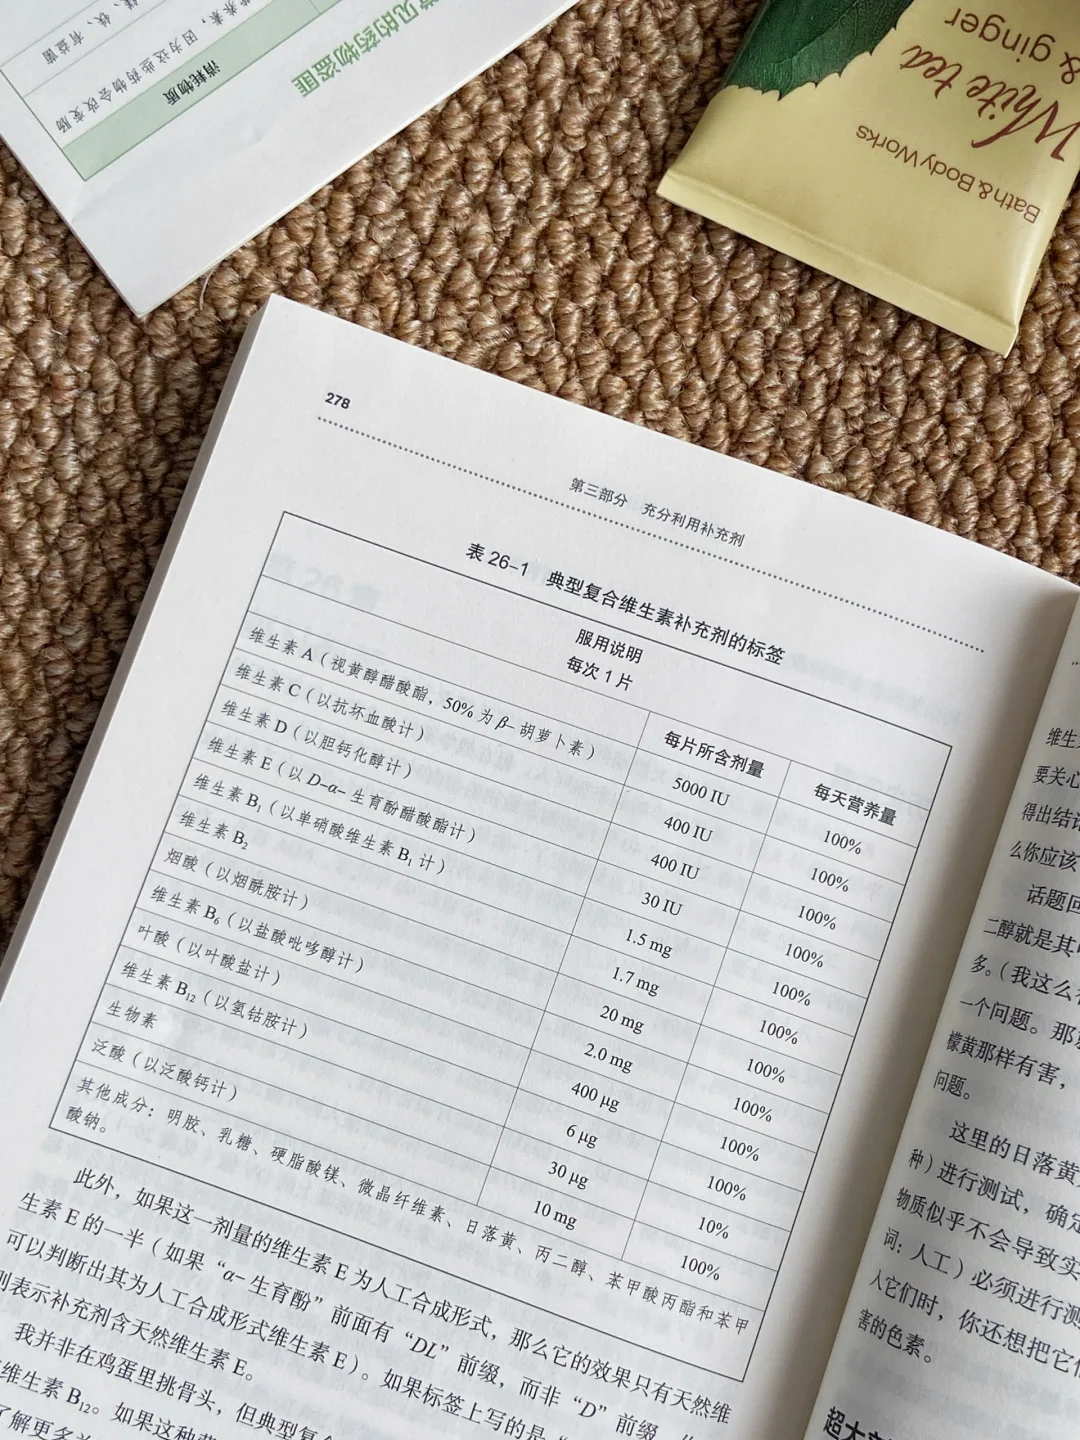 常见的药物盗匪
消耗物质
因为这些药物会改变肠
有益菌
White tea
& ginger
Bath & Body Works
278
第三部分 充分利用补充剂
表 26-1 典型复合维生素补充剂的标签
服用说明
每次 1 片
每片所含剂量 每天营养量
维生素 A（视黄醇醋酸酯，50% 为 β- 胡萝卜素） 5000 IU 100%
维生素 C（以抗坏血酸计） 400 IU 100%
维生素 D（以胆钙化醇计） 400 IU 100%
维生素 E（以 D-α- 生育酚醋酸酯计） 30 IU 100%
维生素 B₁（以单硝酸维生素 B₁ 计） 1.5 mg 100%
维生素 B₂ 1.7 mg 100%
烟酸（以烟酰胺计） 20 mg 100%
维生素 B₆（以盐酸吡哆醇计） 2.0 mg 100%
叶酸（以叶酸盐计） 400 μg 100%
维生素 B₁₂（以氢钴胺计） 6 μg 100%
生物素 30 μg 10%
泛酸（以泛酸钙计） 10 mg 100%
其他成分：明胶、乳糖、硬脂酸镁、微晶纤维素、日落黄、丙二醇、苯甲酸丙酯和苯甲
酸钠。
此外，如果这一剂量的维生素 E 为人工合成形式，那么它的效果只有天然维
生素 E 的一半（如果“α- 生育酚”前面有“DL”前缀，而非“D”前缀，
可以判断出其为人工合成形式维生素 E）。如果标签上写的是“
则表示补充剂含天然维生素 E。
我并非在鸡蛋里挑骨头，但典型复合
维生素 B₁₂。如果这种
了解更多
维生
要关心
得出结论
么你应该
话题回
二醇就是其
多。（我这么
一个问题。那
檬黄那样有害，
问题。
这里的日落黄
种）进行测试，确定
物质似乎不会导致实
词：人工）必须进行测
入它们时，你还想把它
害的色素。
超大